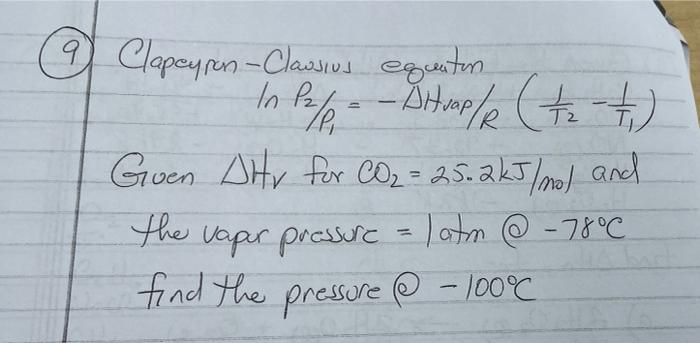 9 Clapeyron-Clausius equation
ln P2/P1 = -ΔHvap/R (1/T2 - 1/T1)
Given ΔHv for CO2 = 25.2kJ/mol and
the vapor pressure = 1 atm @ -78°C
find the pressure @ -100°C